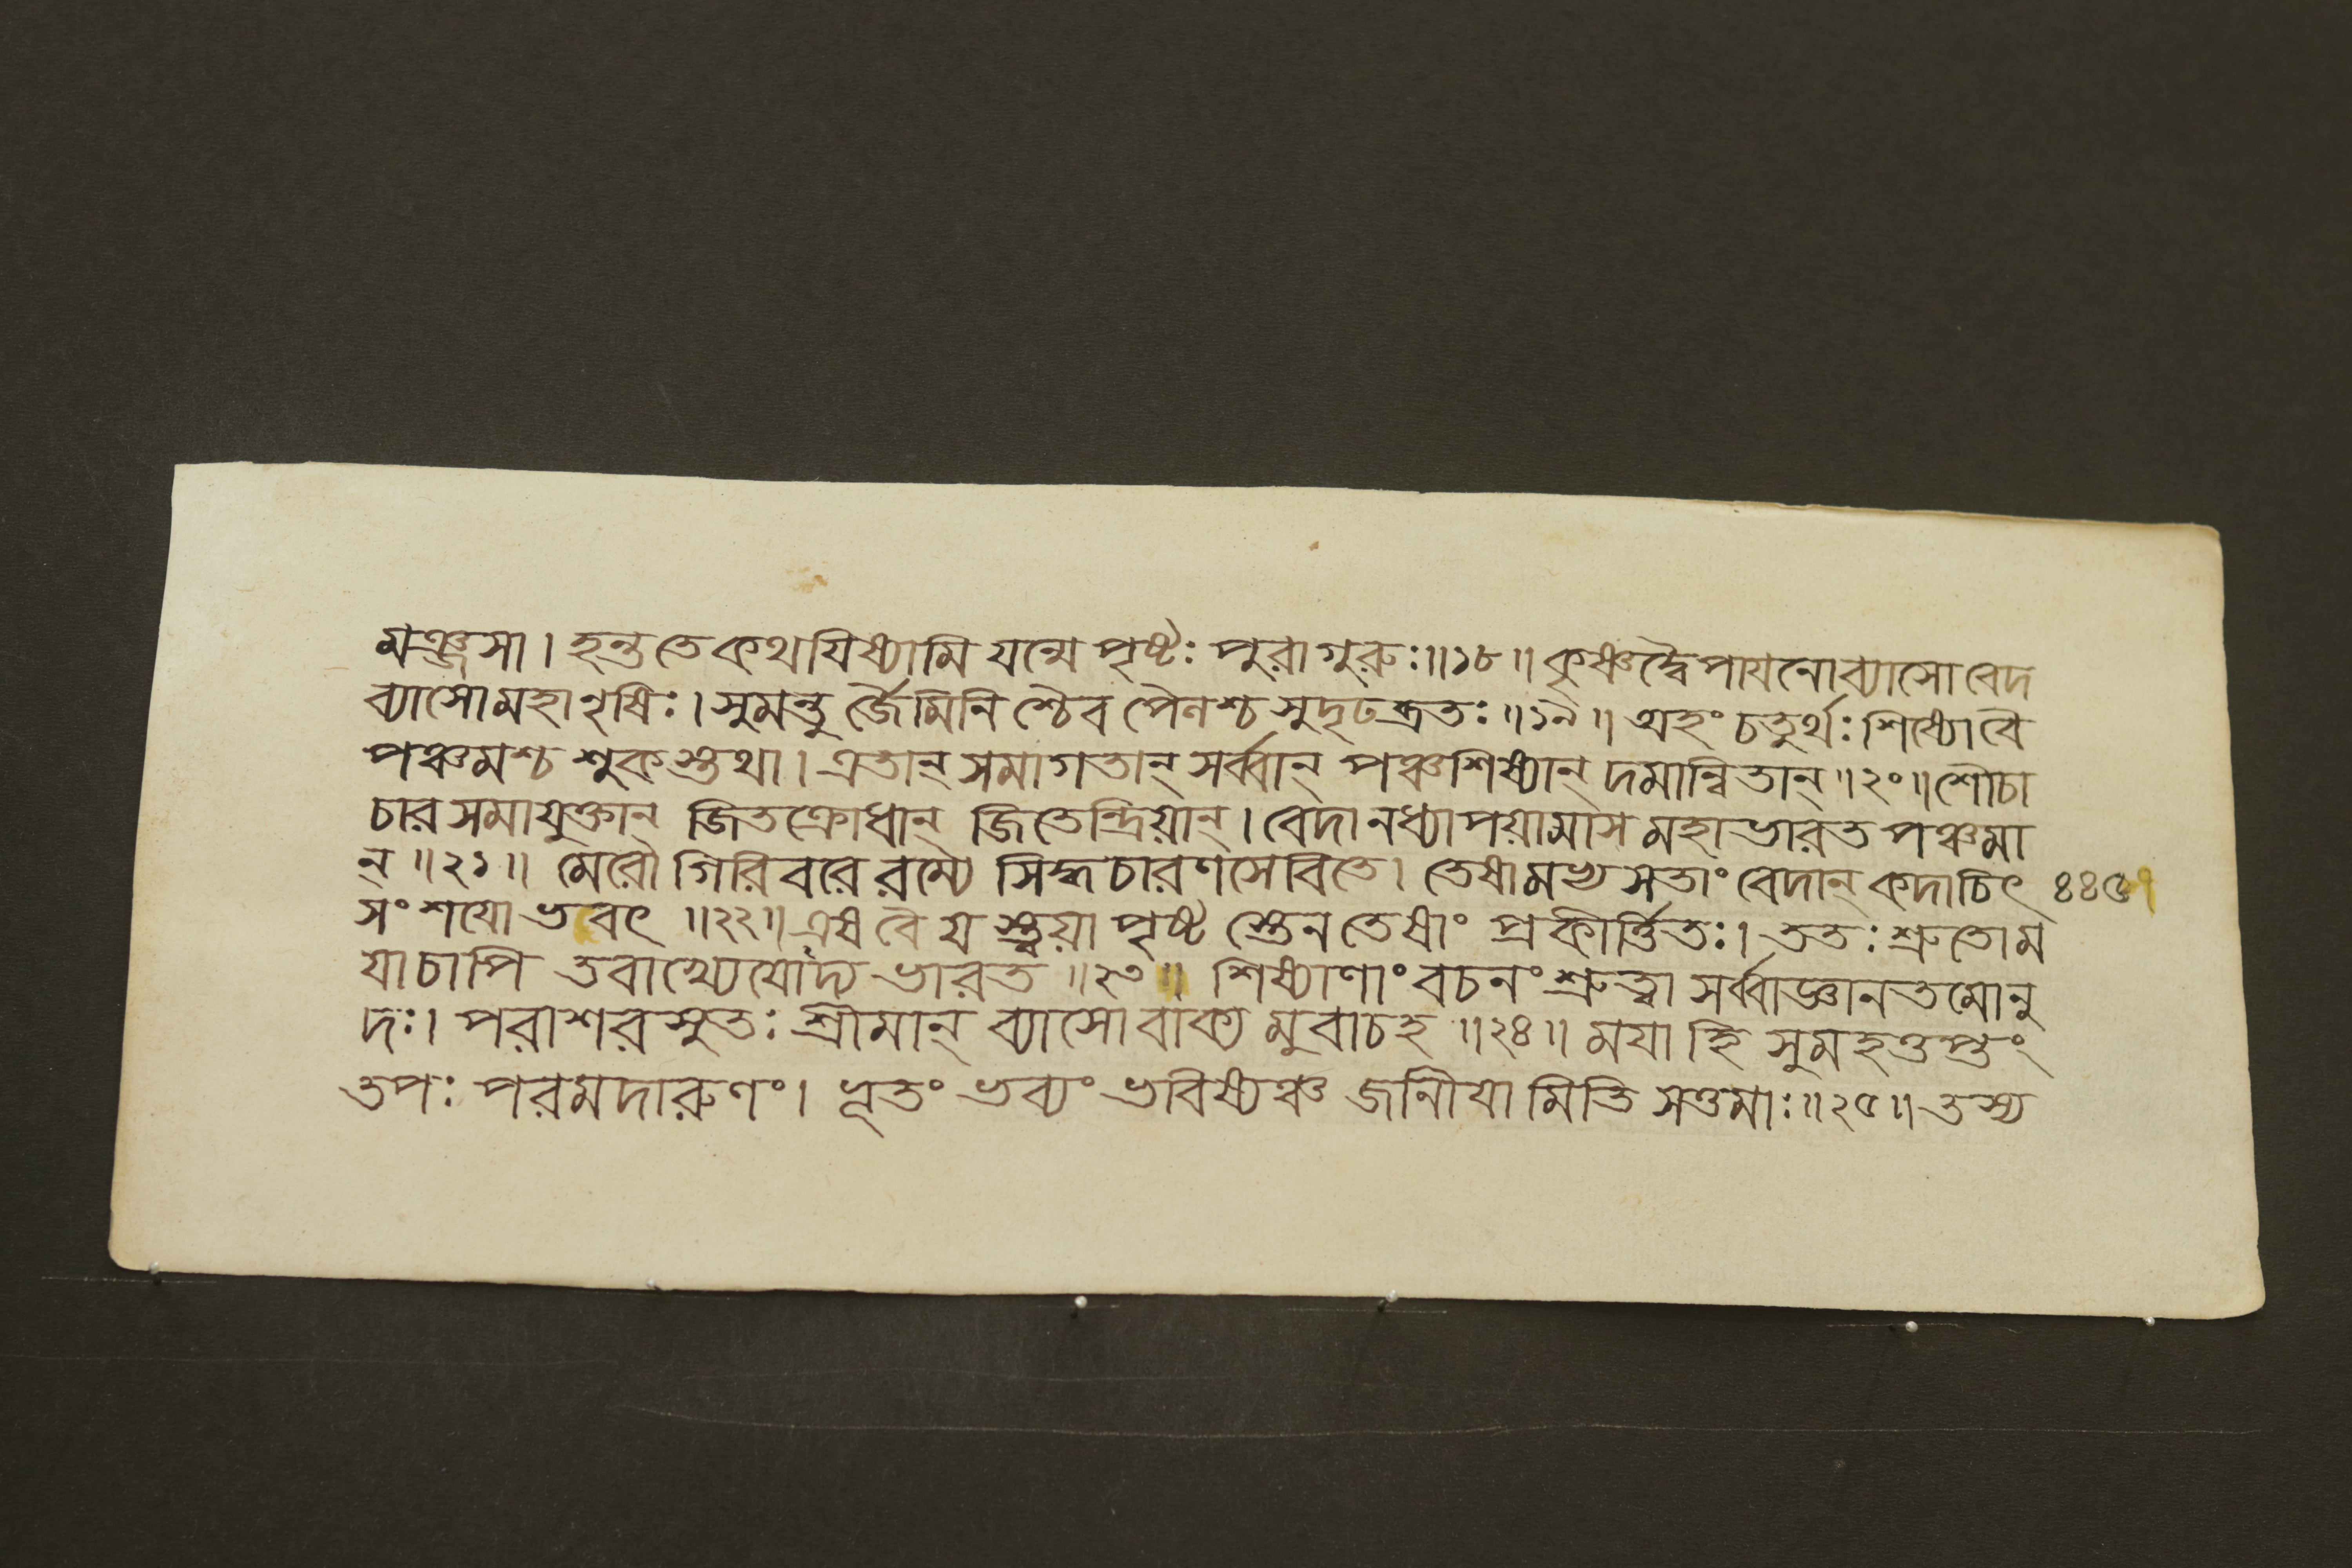 মঞ্জসা। হন্ত তে কথযিষ্যামি যন্মে পৃষ্টঃ পুরা গুরুঃ॥১৮॥ কৃষ্ণদ্বৈপাযনো ব্যাসো বেদ
ব্যাসো মহাঋষিঃ। সুমন্তু র্জৈমিনি শ্চৈব পৈনশ্চ সুদৃঢব্রতঃ॥১৯॥ অহং চতুর্থঃ শিষ্যো বৈ
পঞ্চমশ্চ শুক স্তথা। এতান্ সমাগতান্ সর্ব্বান্ পঞ্চশিষ্যান্ দমান্বিতান্॥২০॥ শৌচা
চার সমাযুক্তান্ জিতক্রোধান্ জিতেন্দ্রিয়ান্। বেদানধ্যাপয়ামাস মহাভারত পঞ্চমা
ন্॥২১॥ মেরৌ গিরিবরে রম্যে সিদ্ধচারণসেবিতে। তেষামভ্যসতাং বেদান্ কদাচিৎ ৪৪৫
সংশযো ভবৎ॥২২॥ এষ বৈ য স্ত্বয়া পৃষ্ট স্তেন তেষাং প্রকীর্ত্তিতঃ। ততঃ শ্রুতো ম
যা চাপি তবাখ্যেযোদ্য ভারত॥২৩॥ শিষ্যাণাং বচনং শ্রুত্বা সর্ব্বাজ্ঞানতমোনু
দঃ। পরাশরসুতঃ শ্রীমান্ ব্যাসো বাক্য মুবাচহ॥২৪॥ মযা হি সুমহত্তপ্তং
তপঃ পরমদারুণং। ভূতং ভব্যং ভবিষ্যঞ্চ জানীযামিতি সত্তমাঃ॥২৫॥ তস্য